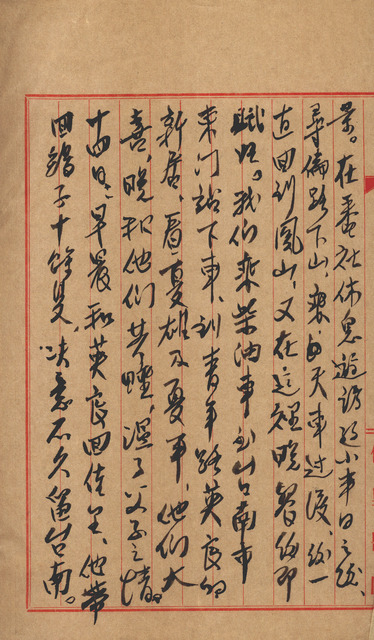 景。在番社休息遊訪小半日之後、
尋舊路下山、乘天車過後、
直回到鳳山、又在這裡晚餐後即
賦歸。我们乘柴油車到台南市
東门站下車、到青年路英良的
新居、看夏雄及夏平、他们大
喜、晚和他們共睡、溫了父子之情。
十四日、早晨和英良回佳里、他帶
回鴿子十餘隻、決意不久留台南。